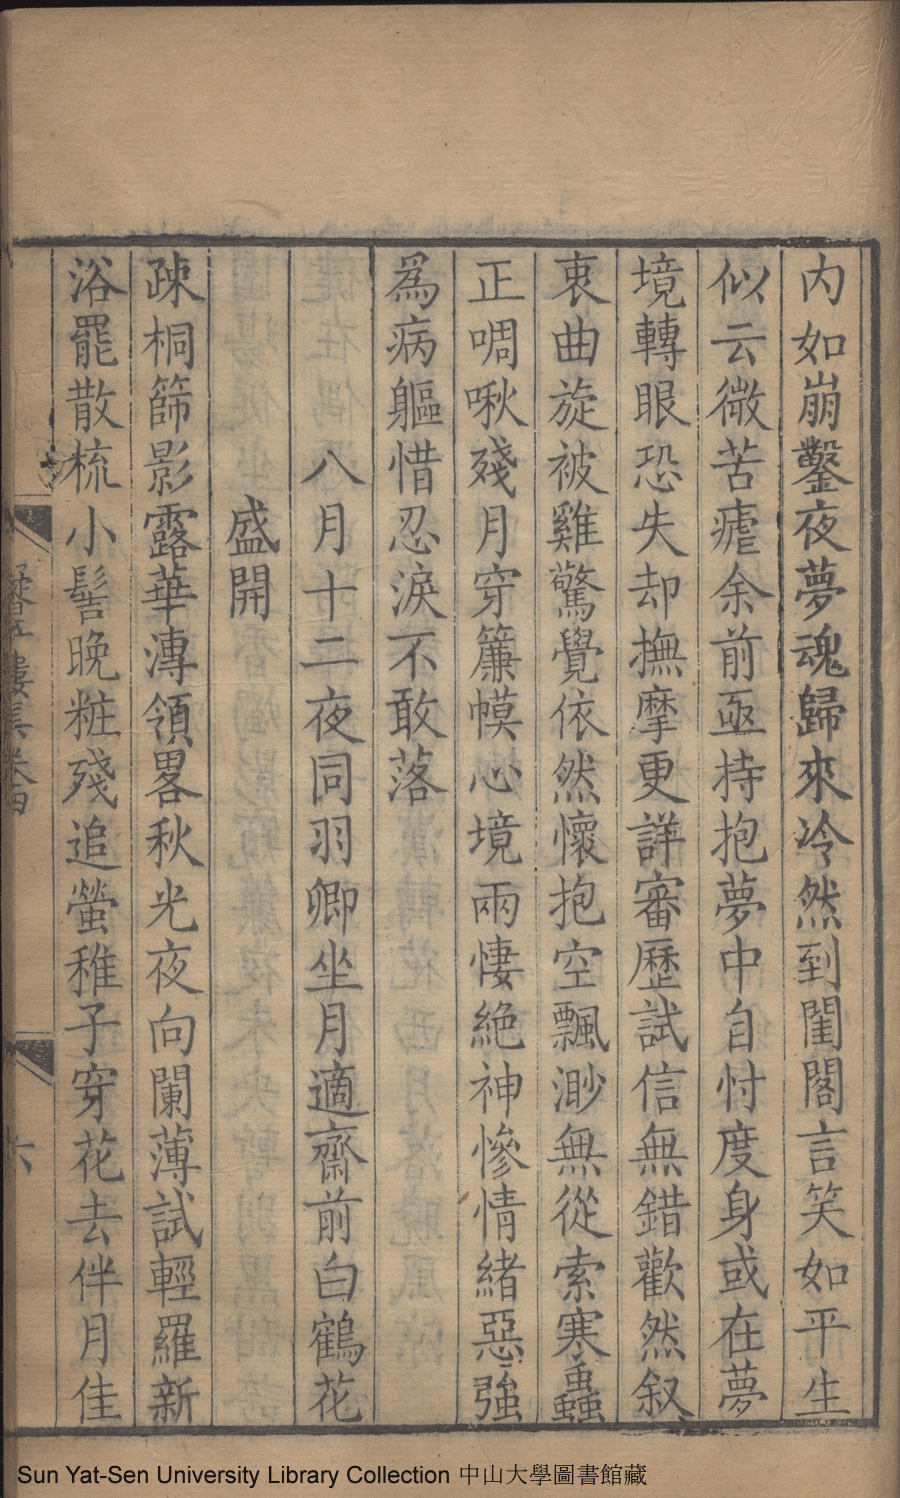 内如崩鑿夜夢魂歸來冷然到閨閣言笑如平生
似云微苦瘧余前亟持抱夢中自忖度身或在夢
境轉眼恐失却撫摩更詳審歷試信無錯歡然叙
衷曲旋被雞驚覺依然懷抱空飄渺無從索寒蛩
正啁啾殘月穿簾幙心境兩悽絶神慘情緒惡強
爲病軀惜忍淚不敢落
八月十二夜同羽卿坐月適齋前白鶴花
盛開
疎桐篩影露華漙領畧秋光夜向闌薄試輕羅新
浴罷散梳小髻晚粧殘追螢稚子穿花去伴月佳
樓集卷四
六
Sun Yat-Sen University Library Collection 中山大學圖書館藏